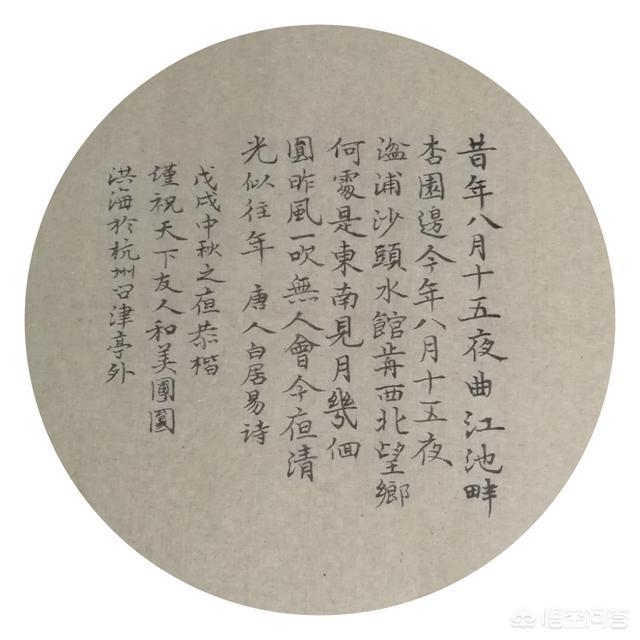 昔年八月十五夜曲江池畔
杏園邊今年八月十五夜
湓浦沙頭水館歬西北望鄉
何處是東南見月幾佪
圓昨風一吹無人會今亱清
光似往年 唐人白居易詩
戊戌中秋之亱恭楷
謹祝天下友人和美團圓
洪海於杭州津亭外
悟空问答